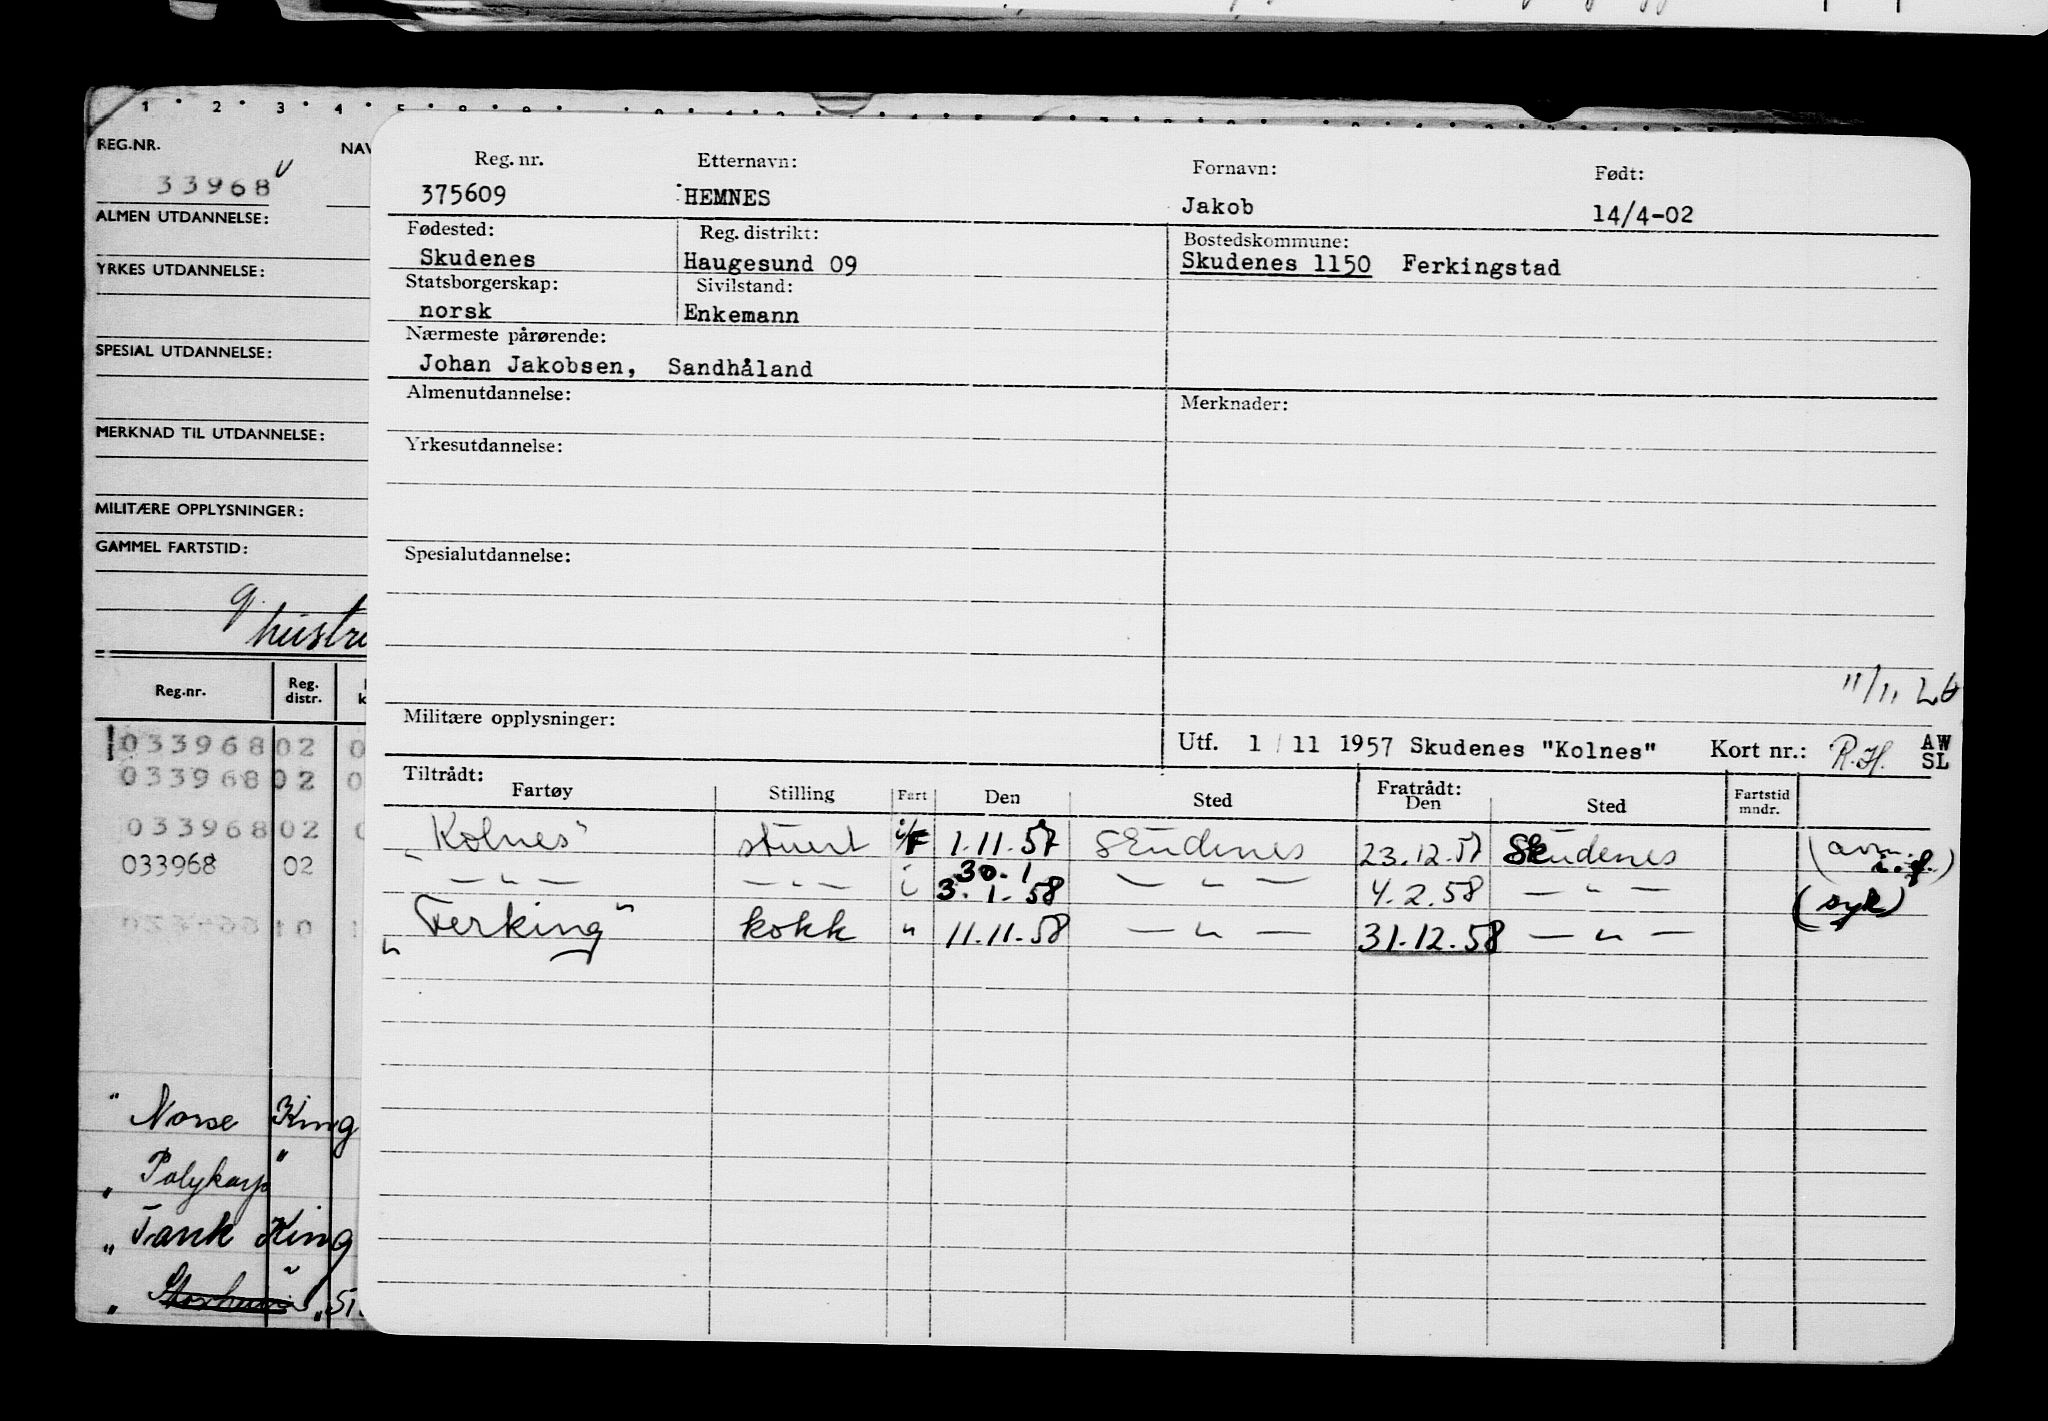 1 2 3 4 5
REG.NR.
NAV
33968
ALMEN UTDANNELSE:
YRKES UTDANNELSE:
SPESIAL UTDANNELSE:
MERKNAD TIL UTDANNELSE:
MILITÆRE OPPLYSNINGER:
GAMMEL FARTSTID:
g.
hustru
Reg.nr. Reg. distr.
033968 02 0
033968 02 0
033968 02 0
033968 02
" Norse King
" Polykarp "
" Tank King
Reg. nr. Etternavn: Fornavn: Født:
375609 HEMNES Jakob 14/4-02
Fødested: Reg. distrikt: Bostedskommune:
Skudenes Haugesund 09 Skudenes 1150 Ferkingstad
Statsborgerskap: Sivilstand:
norsk Enkemann
Nærmeste pårørende:
Johan Jakobsen, Sandhåland
Almenutdannelse: Merknader:
Yrkesutdannelse:
Spesialutdannelse:
11/11
Militære opplysninger:
Utf. 1/11 1957 Skudenes "Kolnes" Kort nr.: R.H. AW SL
Tiltrådt: Fratrådt:
Fartøy Stilling Fart Den Sted Den Sted Fartstid mndr.
"Kolnes" stuert i/F 1.11.57 Skudenes 23.12.57 Skudenes (avm. i.f.)
30.1
— " — — " — i 3.1.58 — " — 4.2.58 — " — (syk)
"Ferking" kokk " 11.11.58 — " — 31.12.58 — " —